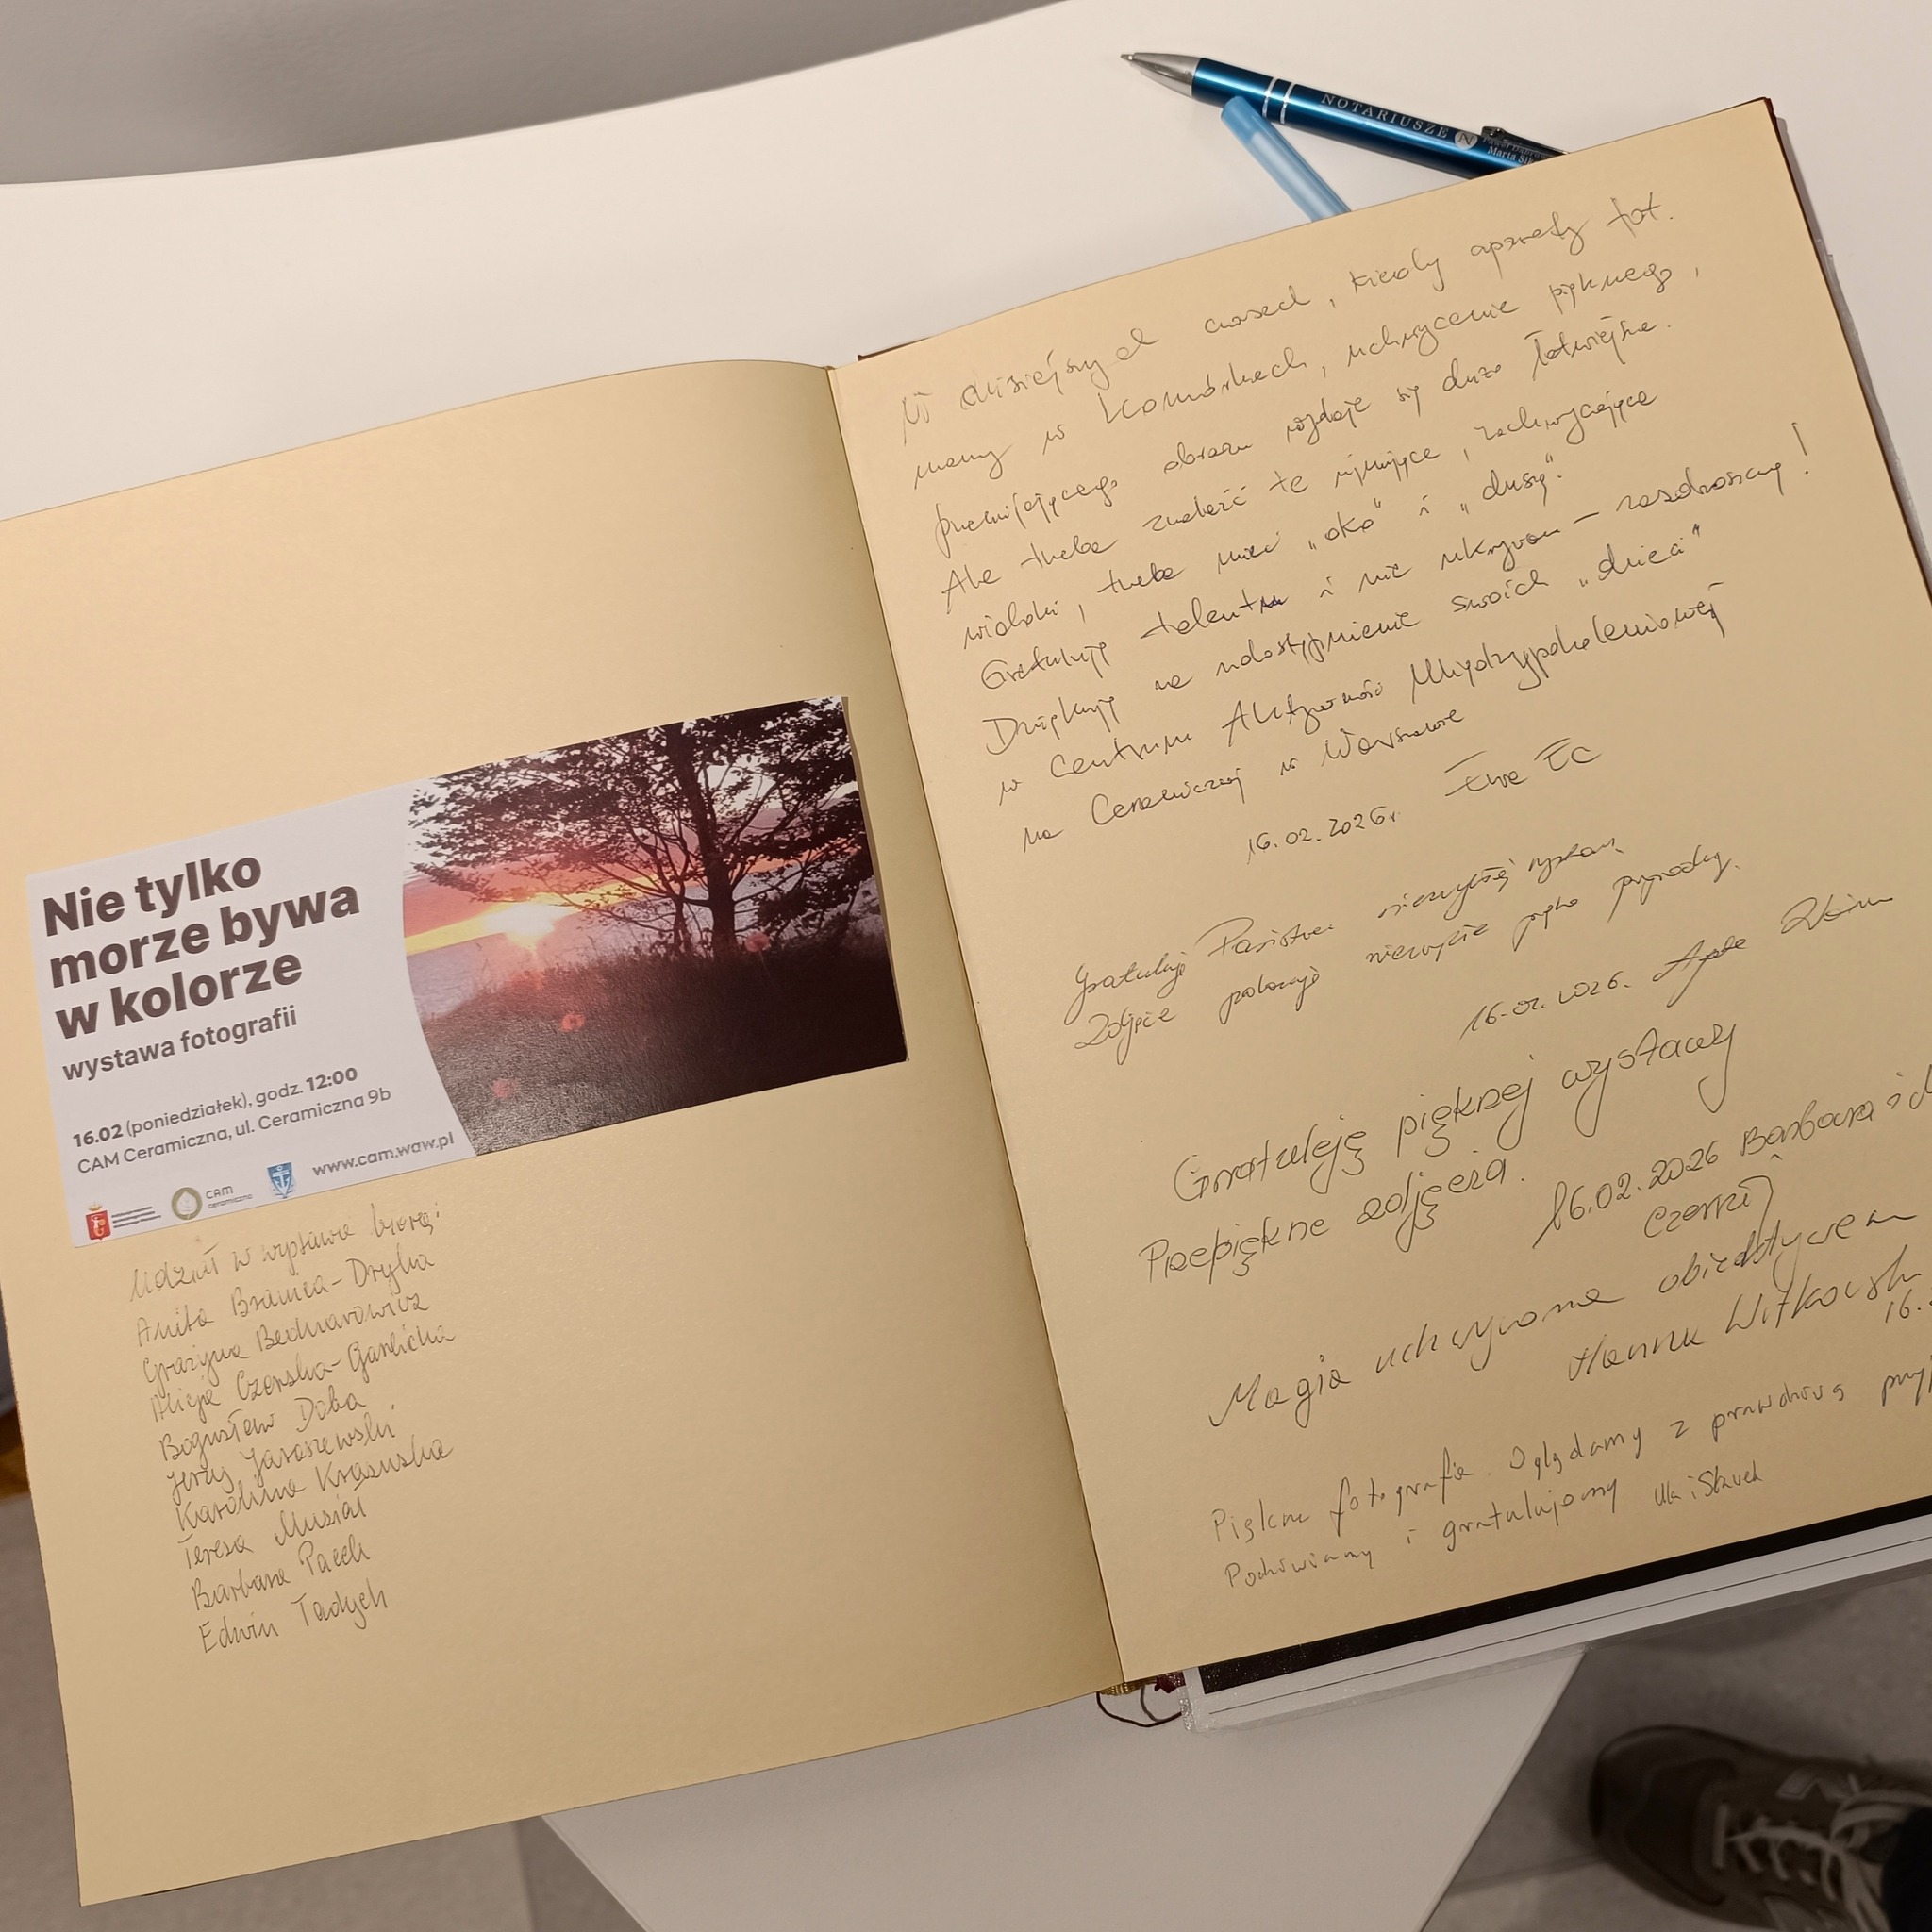 Nie tylko
morze bywa
w kolorze
wystawa fotografii
16.02 (poniedziałek), godz. 12:00
CAM Ceramiczna, ul. Ceramiczna 9b
www.cam.waw.pl
CAM
ceramiczna
Udział w wystawie biorą:
Anita Brańica-Dryha
Grażyna Bednarowicz
Alicja Czerska-Garlicka
Bogusław Doba
Jerzy Jaraszewski
Karolina Krasuska
Teresa Musiał
Barbara Paech
Edwin Tadych
NOTARIUSZE N
Marta
W dzisiejszych czasach, kiedy aparaty fot.
mamy w komórkach, uchwycenie pięknego,
przemijającego obrazu wydaje się dużo łatwiejsze.
Ale trzeba znaleźć te ujmujące, zachwycające
widoki, trzeba mieć „oko" i „duszę".
Gratuluję talentu i nie ukrywam – zazdroszczę!
Dziękuję za udostępnienie swoich „dzieci"
w Centrum Aktywności Międzypokoleniowej
na Ceramicznej w Warszawie
16.02.2026r. Ewa
Gratuluję Państwu niezwykłej wystawy.
Zdjęcia pokazują niezwykłe piękno przyrody.
16.02.2026.
Gratuluję pięknej wystawy
Przepiękne zdjęcia.
16.02.2026 Barbara i
Czerscy
Magia uchwycona obiektywem
Hanna Witkowska
16.
Piękne fotografie. Oglądamy z prawdziwą
Podziwiamy i gratulujemy Ula i Sławek